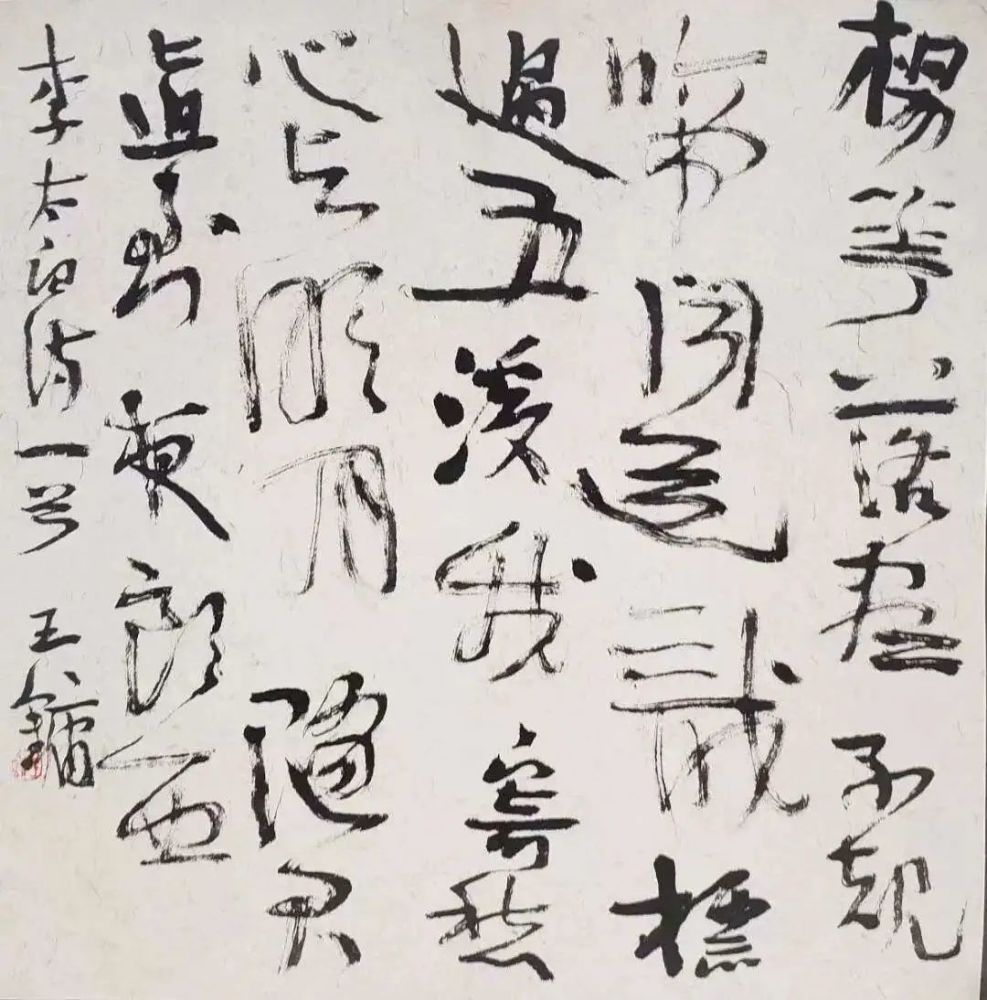 楊花落盡子規
啼聞道龍標
過五溪我寄愁
心与明月隨君
直到夜郎西
李太白詩一首 王鏞